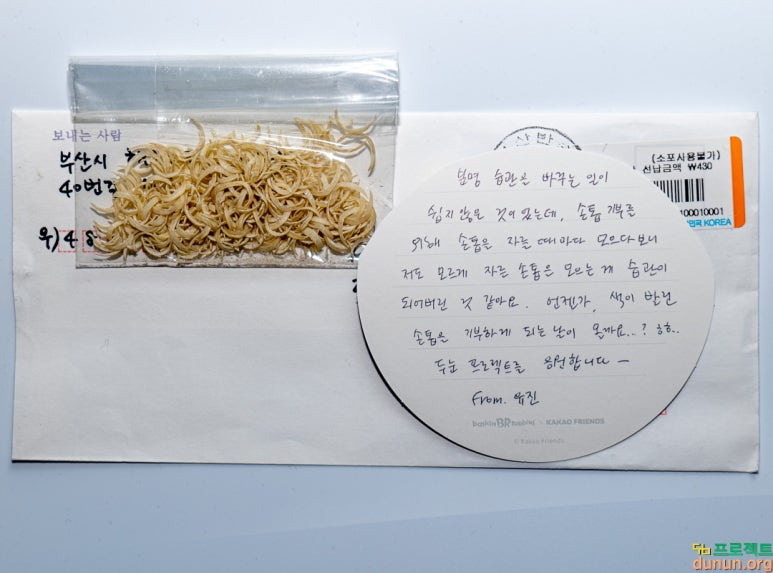 보내는 사람
부산시
40번길
우) 4 8
(소포사용불가)
선납금액 ₩430
100010001
대한민국 KOREA
분명 습관을 바꾸는 일이
쉽지 않을 것이 있는데, 손톱 기부를
위해 손톱을 자를 때마다 모으다보니
저도 모르게 자른 손톱을 모으는 게 습관이
되어버린 것 같아요. 언젠가, 색이 바랜
손톱을 기부하게 되는 날이 올까요..? 흐흐..
두눈 프로젝트를 응원합니다 ㅡ
From. 유진
baskin BR robbins × KAKAO FRIENDS
© Kakao Friends.
프로젝트
dunun.org